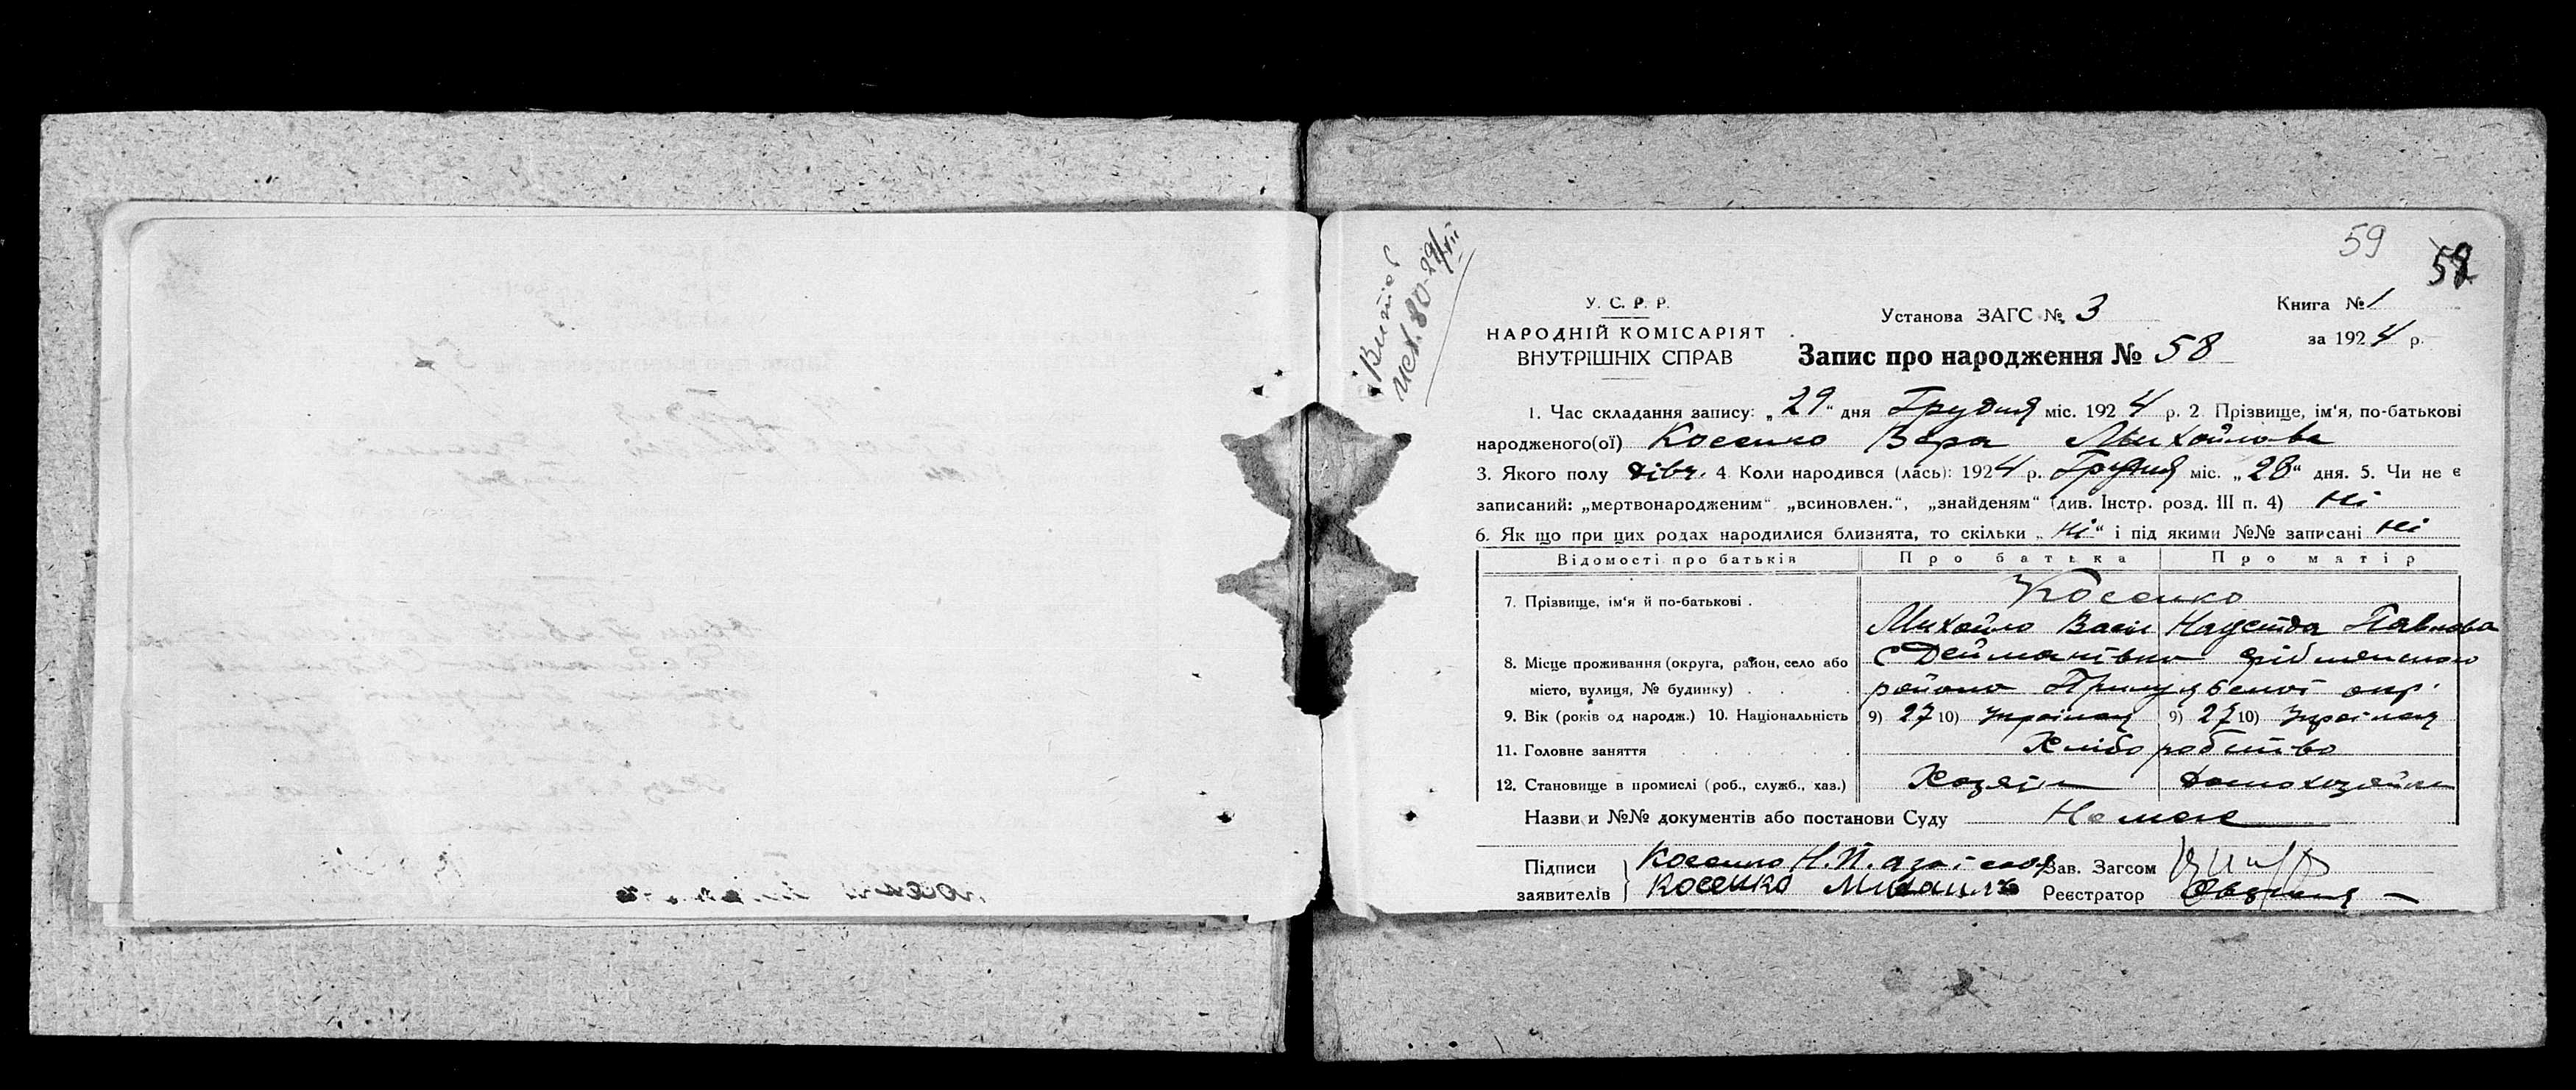 59
58
У. С. Р. Р.
НАРОДНІЙ КОМІСАРІЯТ
ВНУТРІШНІХ СПРАВ
Установа ЗАГС № 3
Книга № 1
за 1924 р.
Запис про народження № 58
1. Час складання запису: „29“ дня Грудня міс. 1924 р. 2 Прізвище, ім‘я, по-батькові
народженого(ої) Косенко Вера Михайлова
3. Якого полу дівч. 4 Коли народився (лась): 1924 р. Грудня міс. „28“ дня. 5. Чи не є
записаний: „мертвонародженим“ „всиновлен.“, „знайденям“ (див. Інстр. розд. III п. 4) Ні
6. Як що при цих родах народилися близнята, то скільки „Ні“ і під якими №№ записані Ні
Відомості про батьків Про батька Про матір
7. Прізвище, ім‘я й по-батькові . Косенко
Михайло Васил Надежда Павлова
8. Місце проживання (округа, район, село або с Дейманівка
місто, вулиця, № будинку) . . . району Прилуцької окр.
9. Вік (років од народж.) 10. Національність 9) 27 10) Українец 9) 27 10) Українец
11. Головне заняття . . . . Хліборобство
12. Становище в промислі (роб., служб., хаз.) Хозяїн домохозяйка
Назви и №№ документів або постанови Суду Немає
Підписи
заявителів
Косенко Н. П.
Косенко Михаилъ
Зав. Загсом
Реєстратор